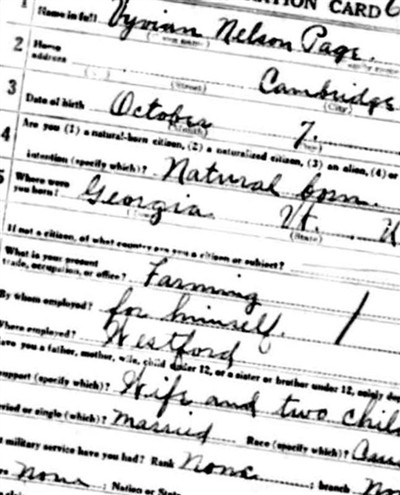 ATION CARD
1 Name in full Vyvian Nelson Page.
2 Home address Cambridge
(Street) (City)
3 Date of birth October 7.
(Month)
4 Are you (1) a natural-born citizen, (2) a naturalized citizen, (3) an alien, (4) or
intention (specify which)? Natural born.
5 Where were you born? Georgia Vt. U
(State)
If not a citizen, of what country are you a citizen or subject?
What is your present trade, occupation, or office? Farming
By whom employed? for himself.
Where employed? Westford
ave you a father, mother, wife, child under 12, or a sister or brother under 12, solely dep
upport (specify which)? Wife and two chil
ried or single (which)? Married Race (specify which)? Cau
military service have you had? Rank None ; branch
None ; Nation or State